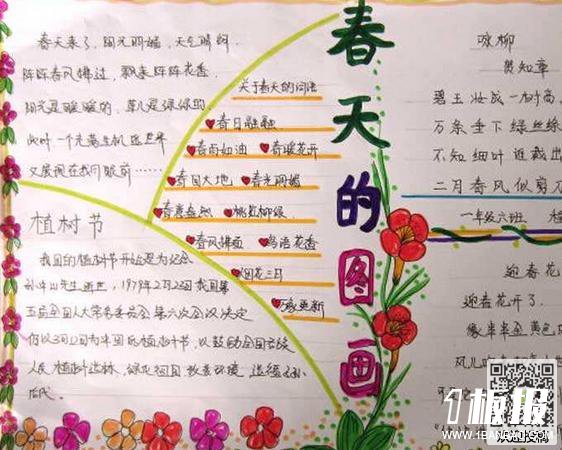 春天的图画
春天来了,阳光明媚,天气晴朗,
阵阵春风拂过,飘来阵阵花香,
阳光是暖暖的,草儿是绿绿的,
此时一个充满生机的世界
又展现在我们眼前……
关于春天的词语
春日融融
春雨如油 春暖花开
春回大地 春光明媚
春意盎然 桃红柳绿
春风拂面 鸟语花香
烟花三月
万象更新
植树节
我国的植树节开始是为纪念
孙中山先生逝世,1979年2月23日我国第
五届全国人大常务委员会第六次会议决定
仍以3月12日为中国的植树节,以鼓励全国各族
人民植树造林,绿化祖国,改善环境,造福子孙
后代。
咏柳
贺知章
碧玉妆成一树高
万条垂下绿丝绦
不知细叶谁裁出
二月春风似剪刀
一年级六班
迎春花
迎春花开了
像串串金黄色
风儿
板报
WWW.1BANBAO.COM